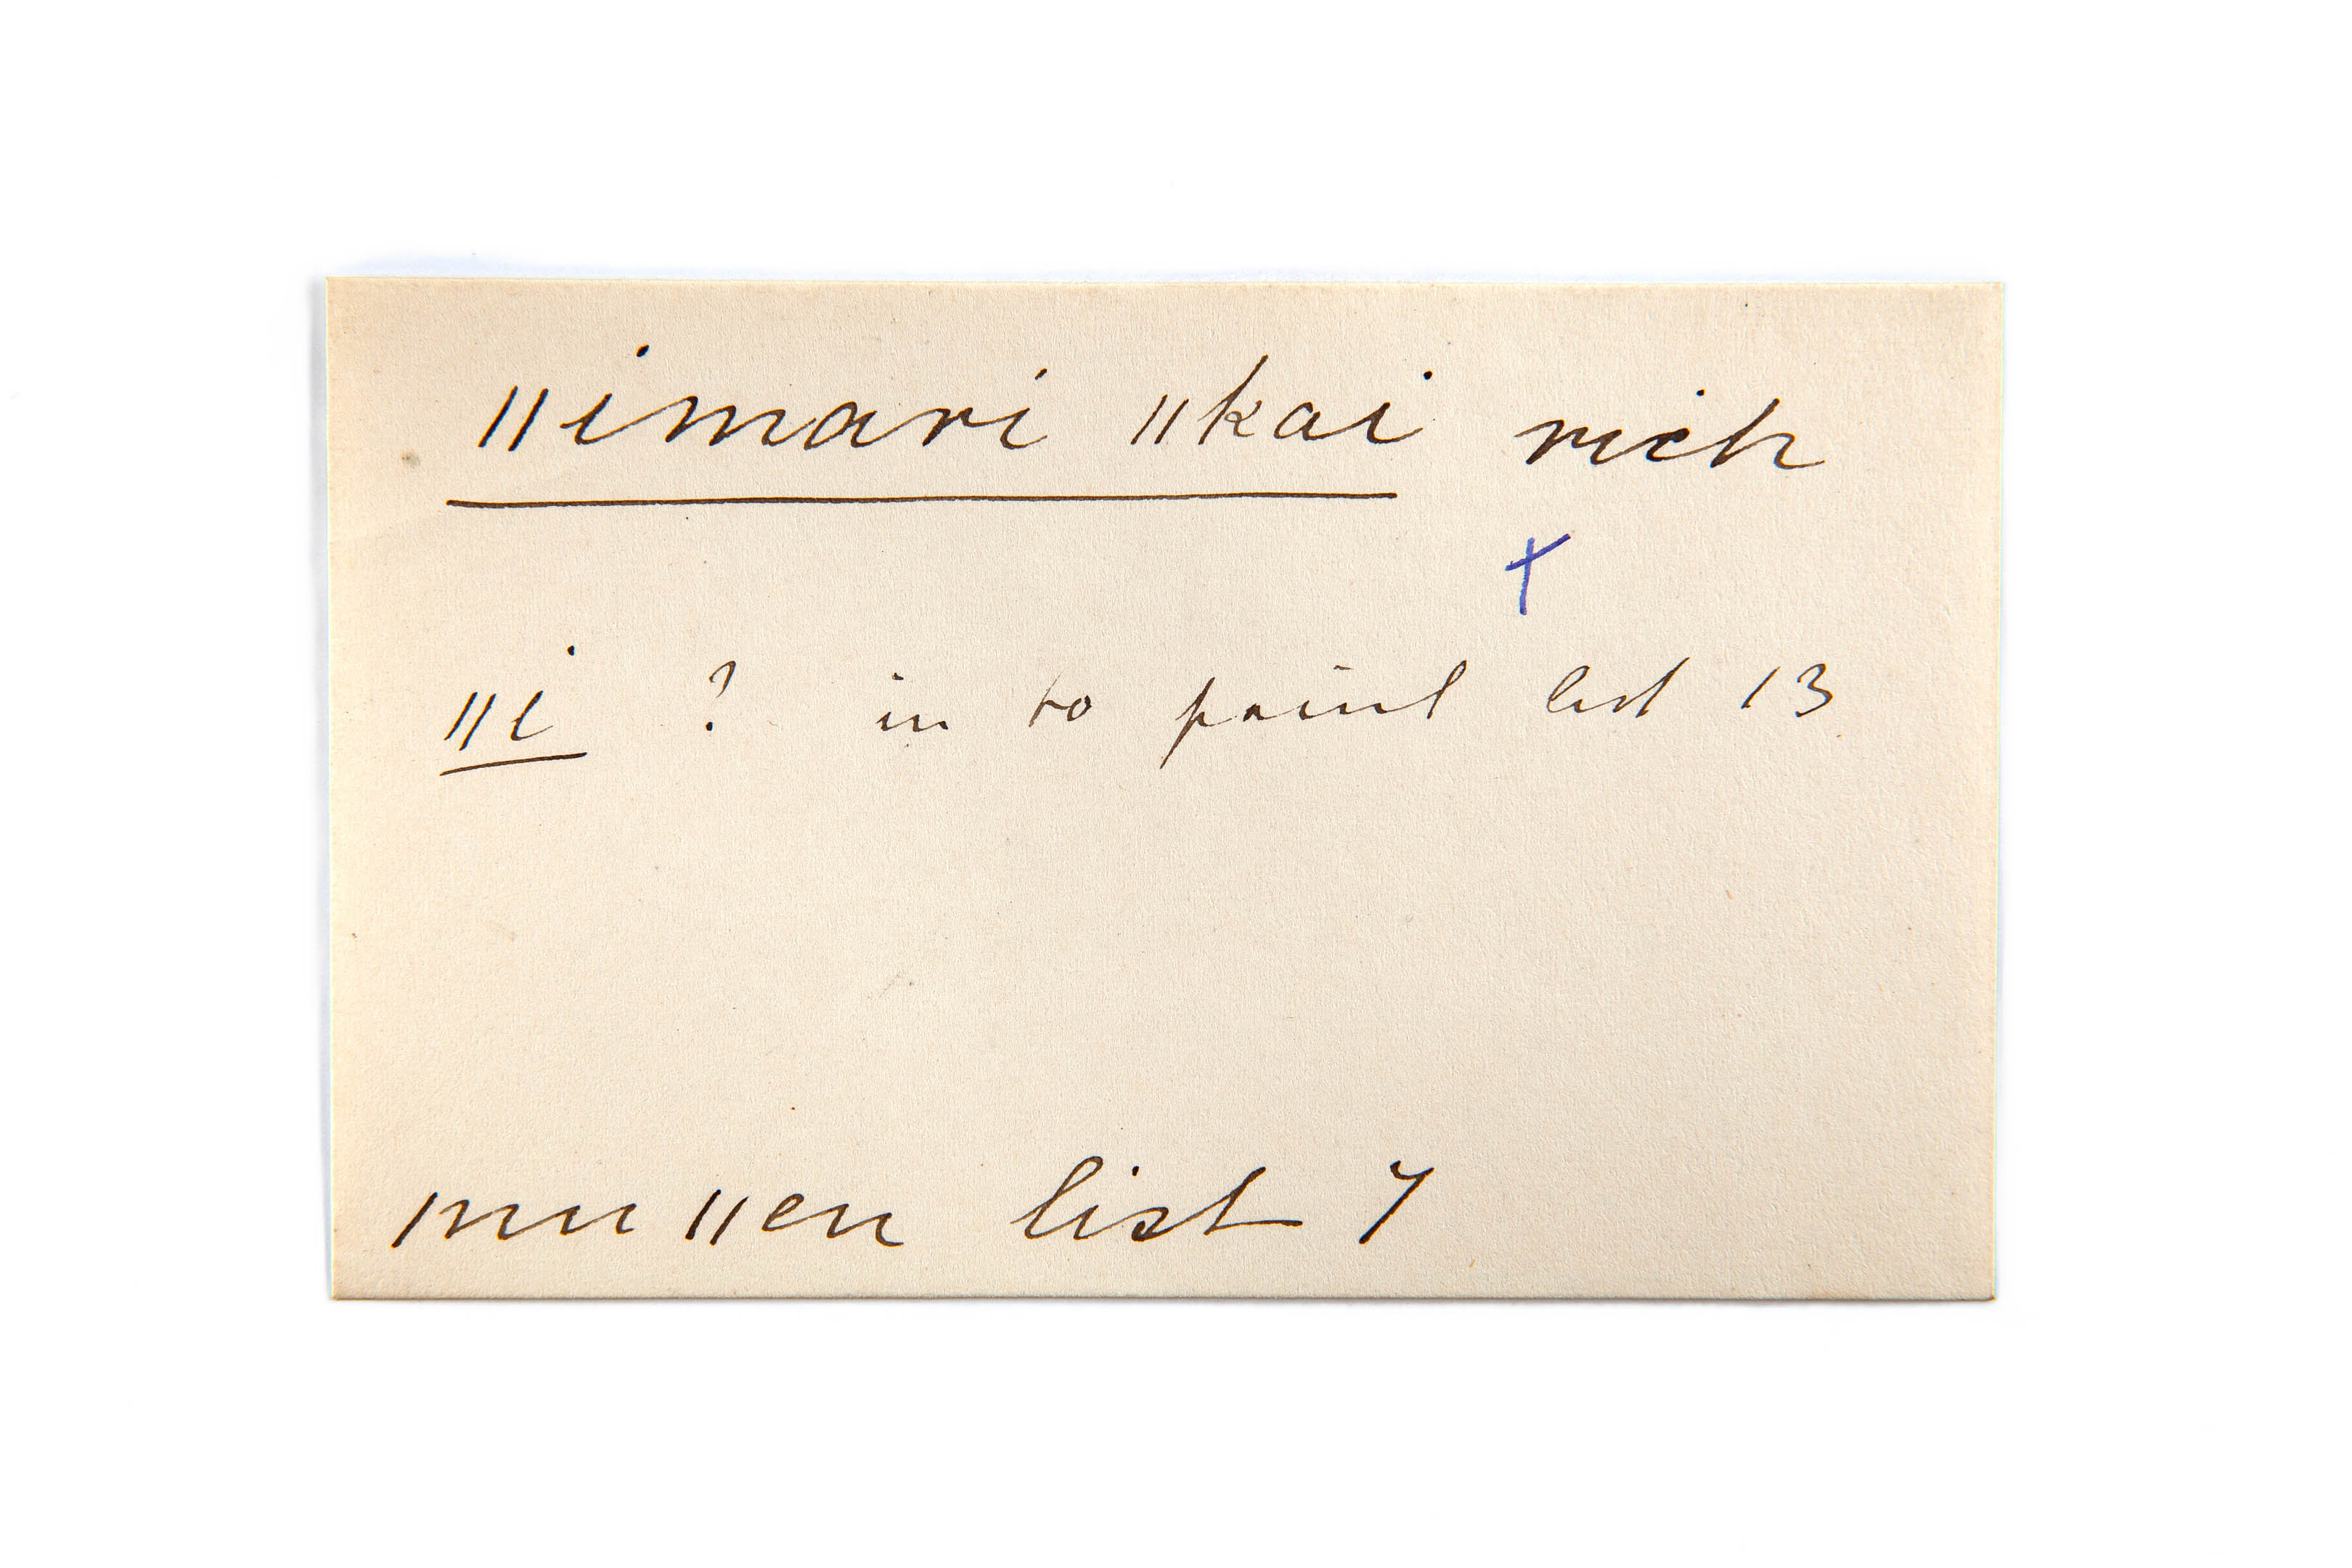 ǁimari ǁkai rich
x
ǁi ? in to paint list 13
ǀnu ǁen list 7